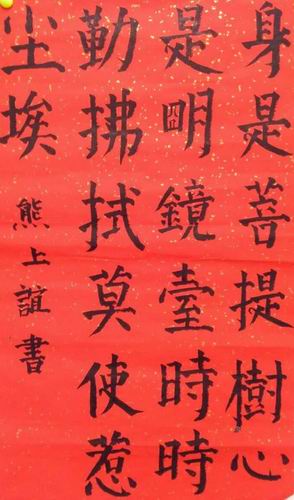 身是菩提樹心
是朙鏡臺時時
勤拂拭莫使惹
尘埃
熊上誼書